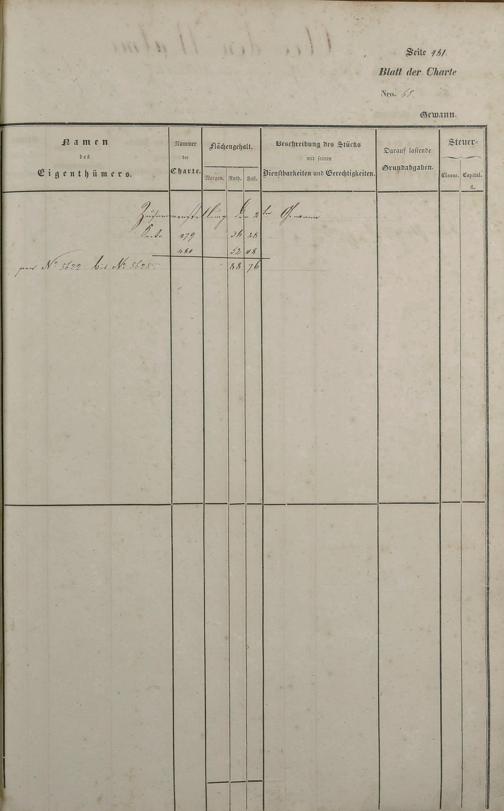 Seite 481.
Blatt der Charte
Nro. 68.
Gewann.
Namen des Eigenthümers.
Nummer der Charte.
Flächengehalt.
Morgen. Ruth. Fuß.
Beschreibung des Stücks mit seinen Dienstbarkeiten und Gerechtigkeiten.
Darauf lastende Grundabgaben.
Steuer-
Classe. Capital.
fl.
Zusammenstellung der 2ten Gewann
Seite 479 36 28
480 52 48
von No 5622 bis No 5625. 88 76